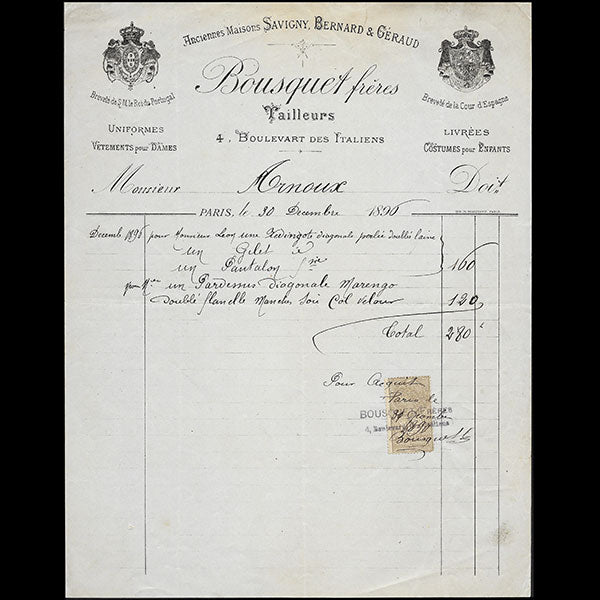 Anciennes Maisons SAVIGNY, BERNARD & GÉRAUD
Bousquet frères
Tailleurs
4, BOULEVART DES ITALIENS
Breveté de S.M. le Roi du Portugal
UNIFORMES
VÊTEMENTS pour DAMES
Breveté de la Cour d'Espagne
LIVRÉES
COSTUMES pour ENFANTS
Monsieur Arnoux Doit
PARIS, le 30 Decembre 1896
Decemb 1896 pour Monsieur Léon une Redingote diagonale perlée doublée laine
un Gilet
un Pantalon 160
pour un Pardessus Diagonale Marengo
doublé flanelle Manches Soie Col velour 120
Total 280
Pour Acquit
Paris le
BOUSQUET FRÈRES
4, Boulevart des Italiens
Bousquet